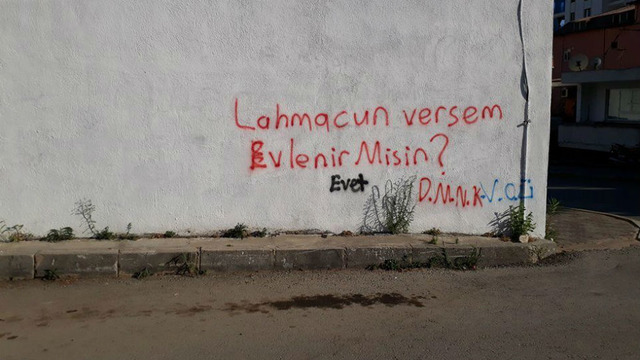 Lahmacun versem
Evlenir Misin?
Evet
D.M.N.K